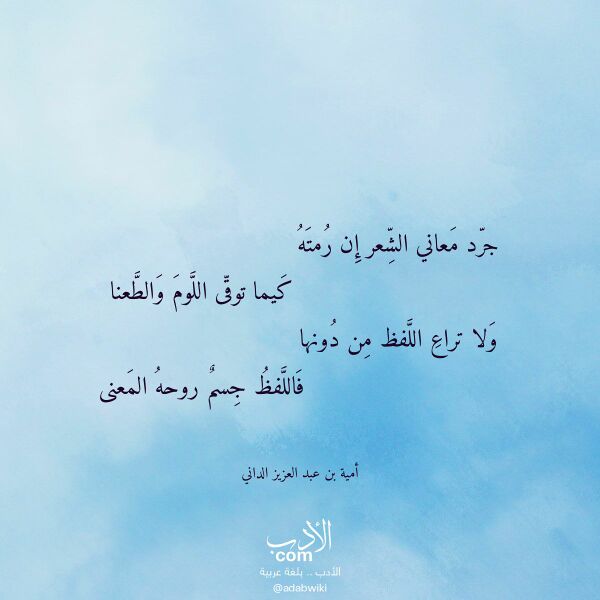 جرّد مَعاني الشِّعر إِن رُمتَهُ
كَيما توقّى اللَّومَ وَالطَّعنا
وَلا تراعِ اللَّفظ مِن دُونها
فَاللَّفظُ جِسمٌ روحهُ المَعنى
أمية بن عبد العزيز الداني
الأدب
com
الأدب .. بلغة عربية
@adabwiki